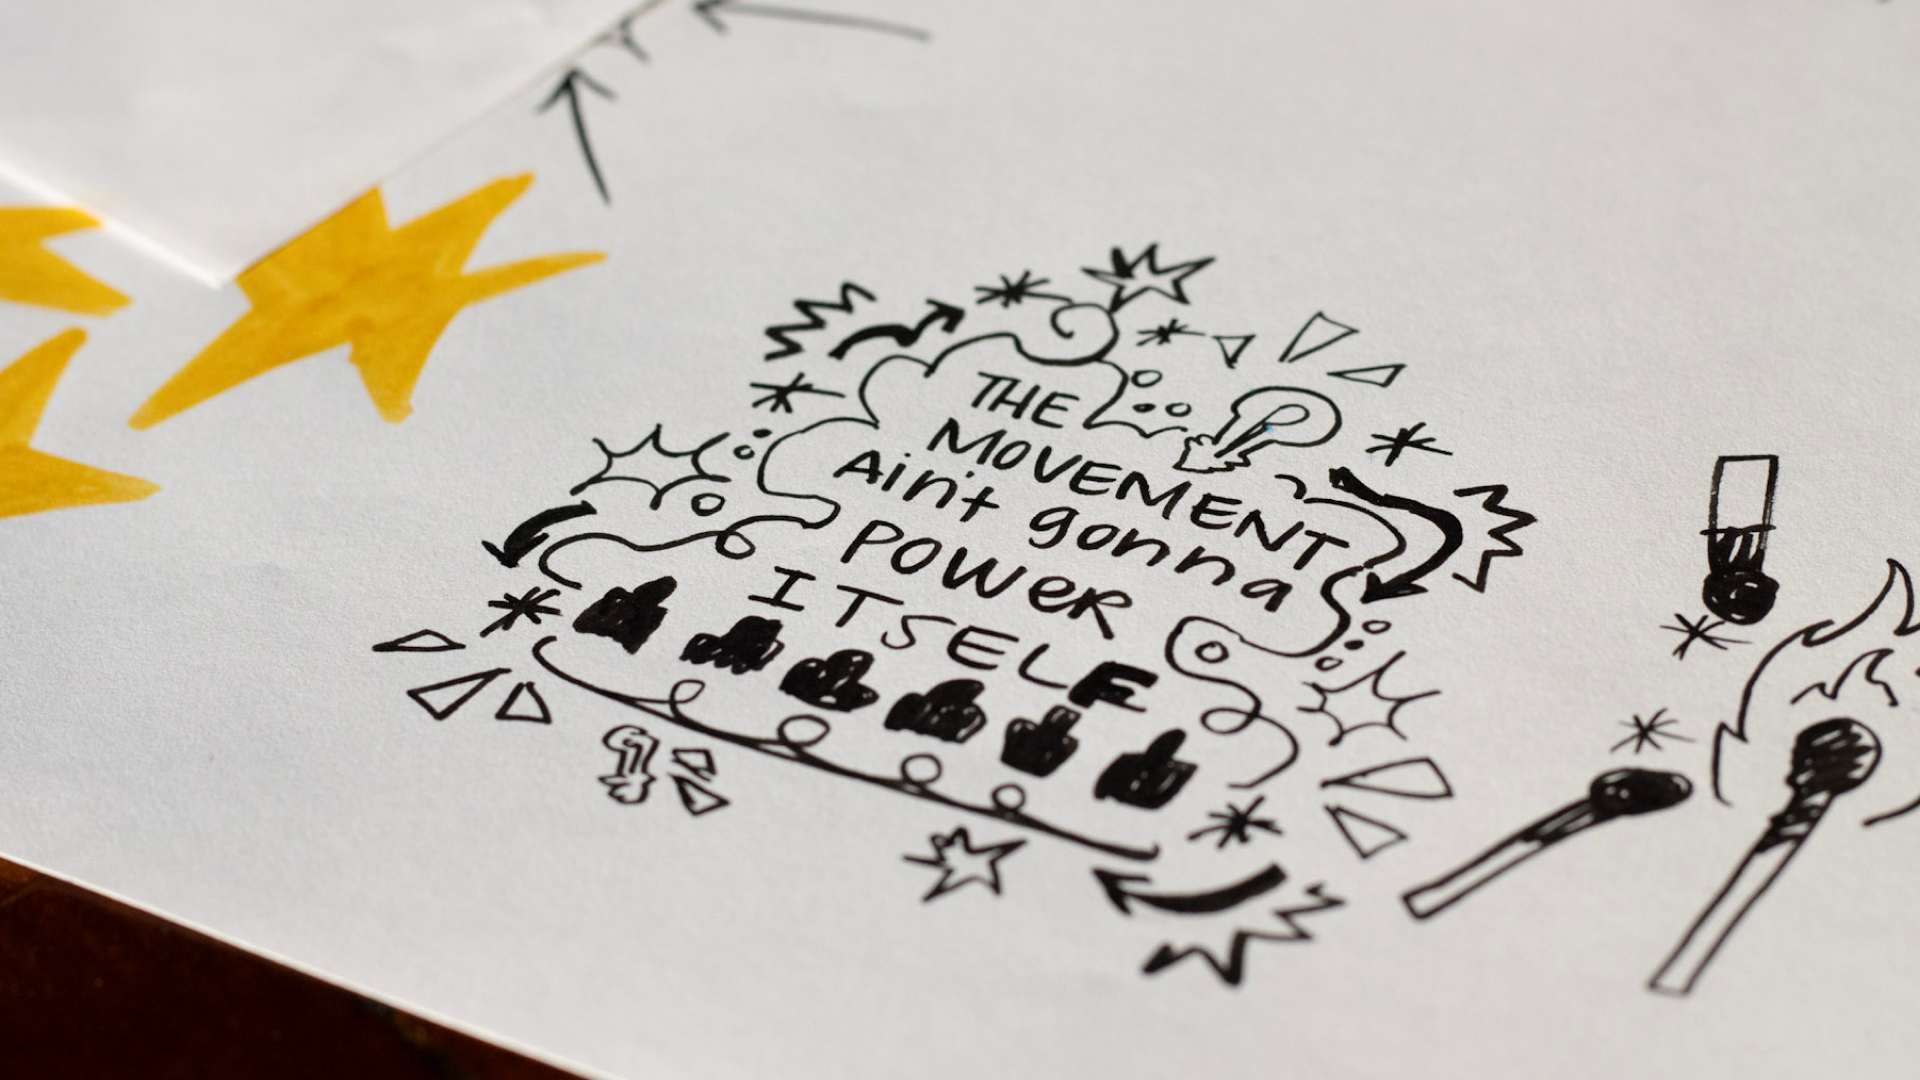 THE
MOVEMENT
Ain't gonna
POWER
ITSELF